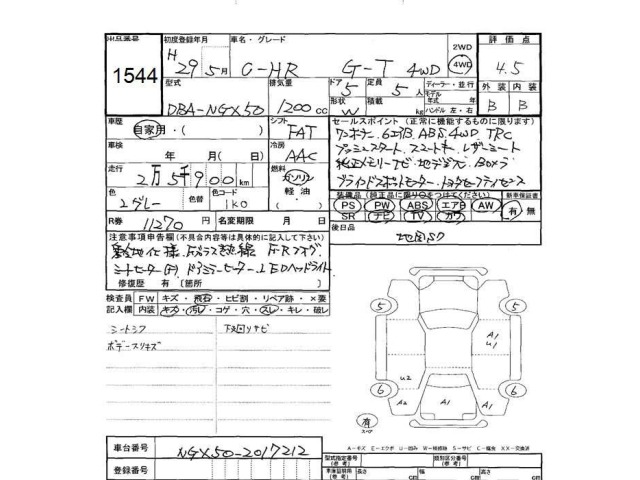 出品番号 初度登録年月 車名・グレード 2WD 評価点
1544 H29年5月 C-HR G-T 4WD 4WD 4.5
型式 排気量 ドア 定員 ディーラー・並行 外装 内装
DBA-NGX50 1200cc 5 5人 モデル 年式 年 B B
形状 W 積載 kg ハンドル 左・右
車歴 シフト セールスポイント（正常に機能するものに限ります）
自家用・（ ） FAT ワンオーナー 6エアB. ABS. 4WD. TRC
車検 冷房 プッシュスタート スマートキー レザーシート
年 月（ 日） AAC 純正メモリーナビ・地デジ Bカメラ
走行 燃料 ブラインドスポットモニター・トヨタセーフティセンス
2万5千900km ガソリン 軽油・ 装備品（純正品に限り○をつけてください） 新車保証書
色 色替 色コード PS PW ABS エアB AW 有 無
2グレー 1K0 SR ナビ TV カワ
R券 11270円 名変期限 月 日 後日品
注意事項申告欄（不具合内容等は具体的に記入して下さい） 地図SD
寒冷地仕様. Fガラス熱線 F・Rフォグ
シートヒーター(F) ドアミラーヒーター LEDヘッドライト
修復歴 有［箇所 ］
検査員 FW キズ・飛石・ヒビ割・リペア跡・×要
記入欄 内装 キズ・汚レ・コゲ・穴・スレ・キレ・破レ
シートシワ 下廻リサビ
ボデースリキズ
5 5
A1
U1
U2
6 6
A2 A1 A1
有
スペア
A－キズ E－エクボ U－凹み W－補修跡 S－サビ C－腐食 XX－交換済
車台番号 NGX50-2017212
登録番号
型式指定番号（参考） 類別区分番号（参考）
車体証明用（参考） 長さ cm 幅 cm 高さ cm